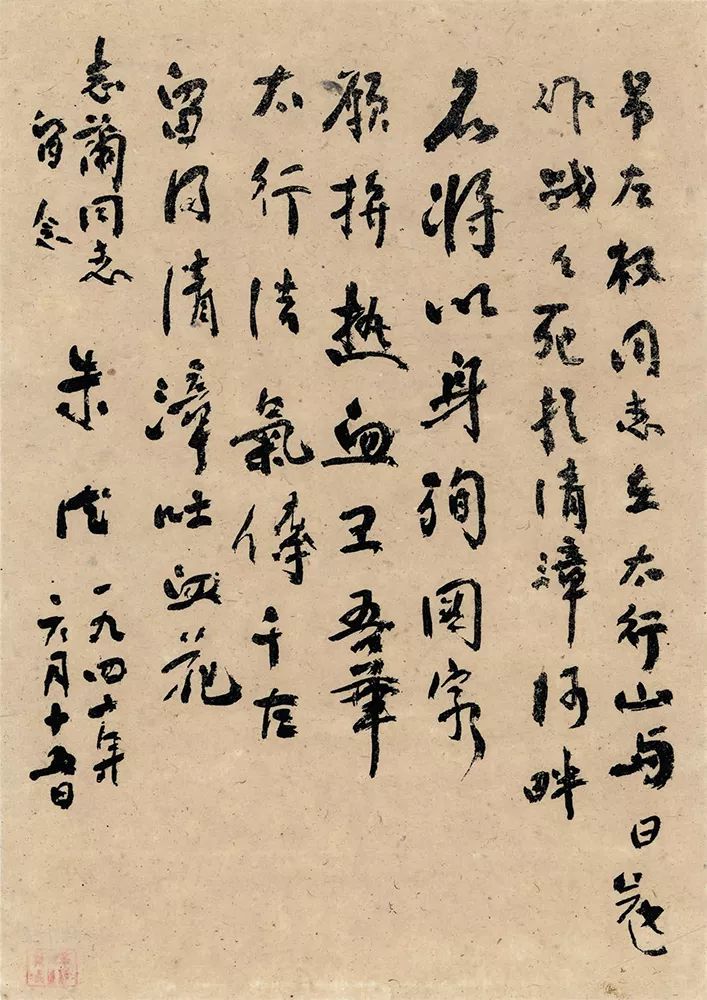 吊左权同志在太行山与日寇
作战々死於清漳河畔
名将以身殉國家
願拚熱血卫吾華
太行浩氣傳千古
留得清漳吐血花
志蘭同志
留念
朱德
一九四二年
六月十五日